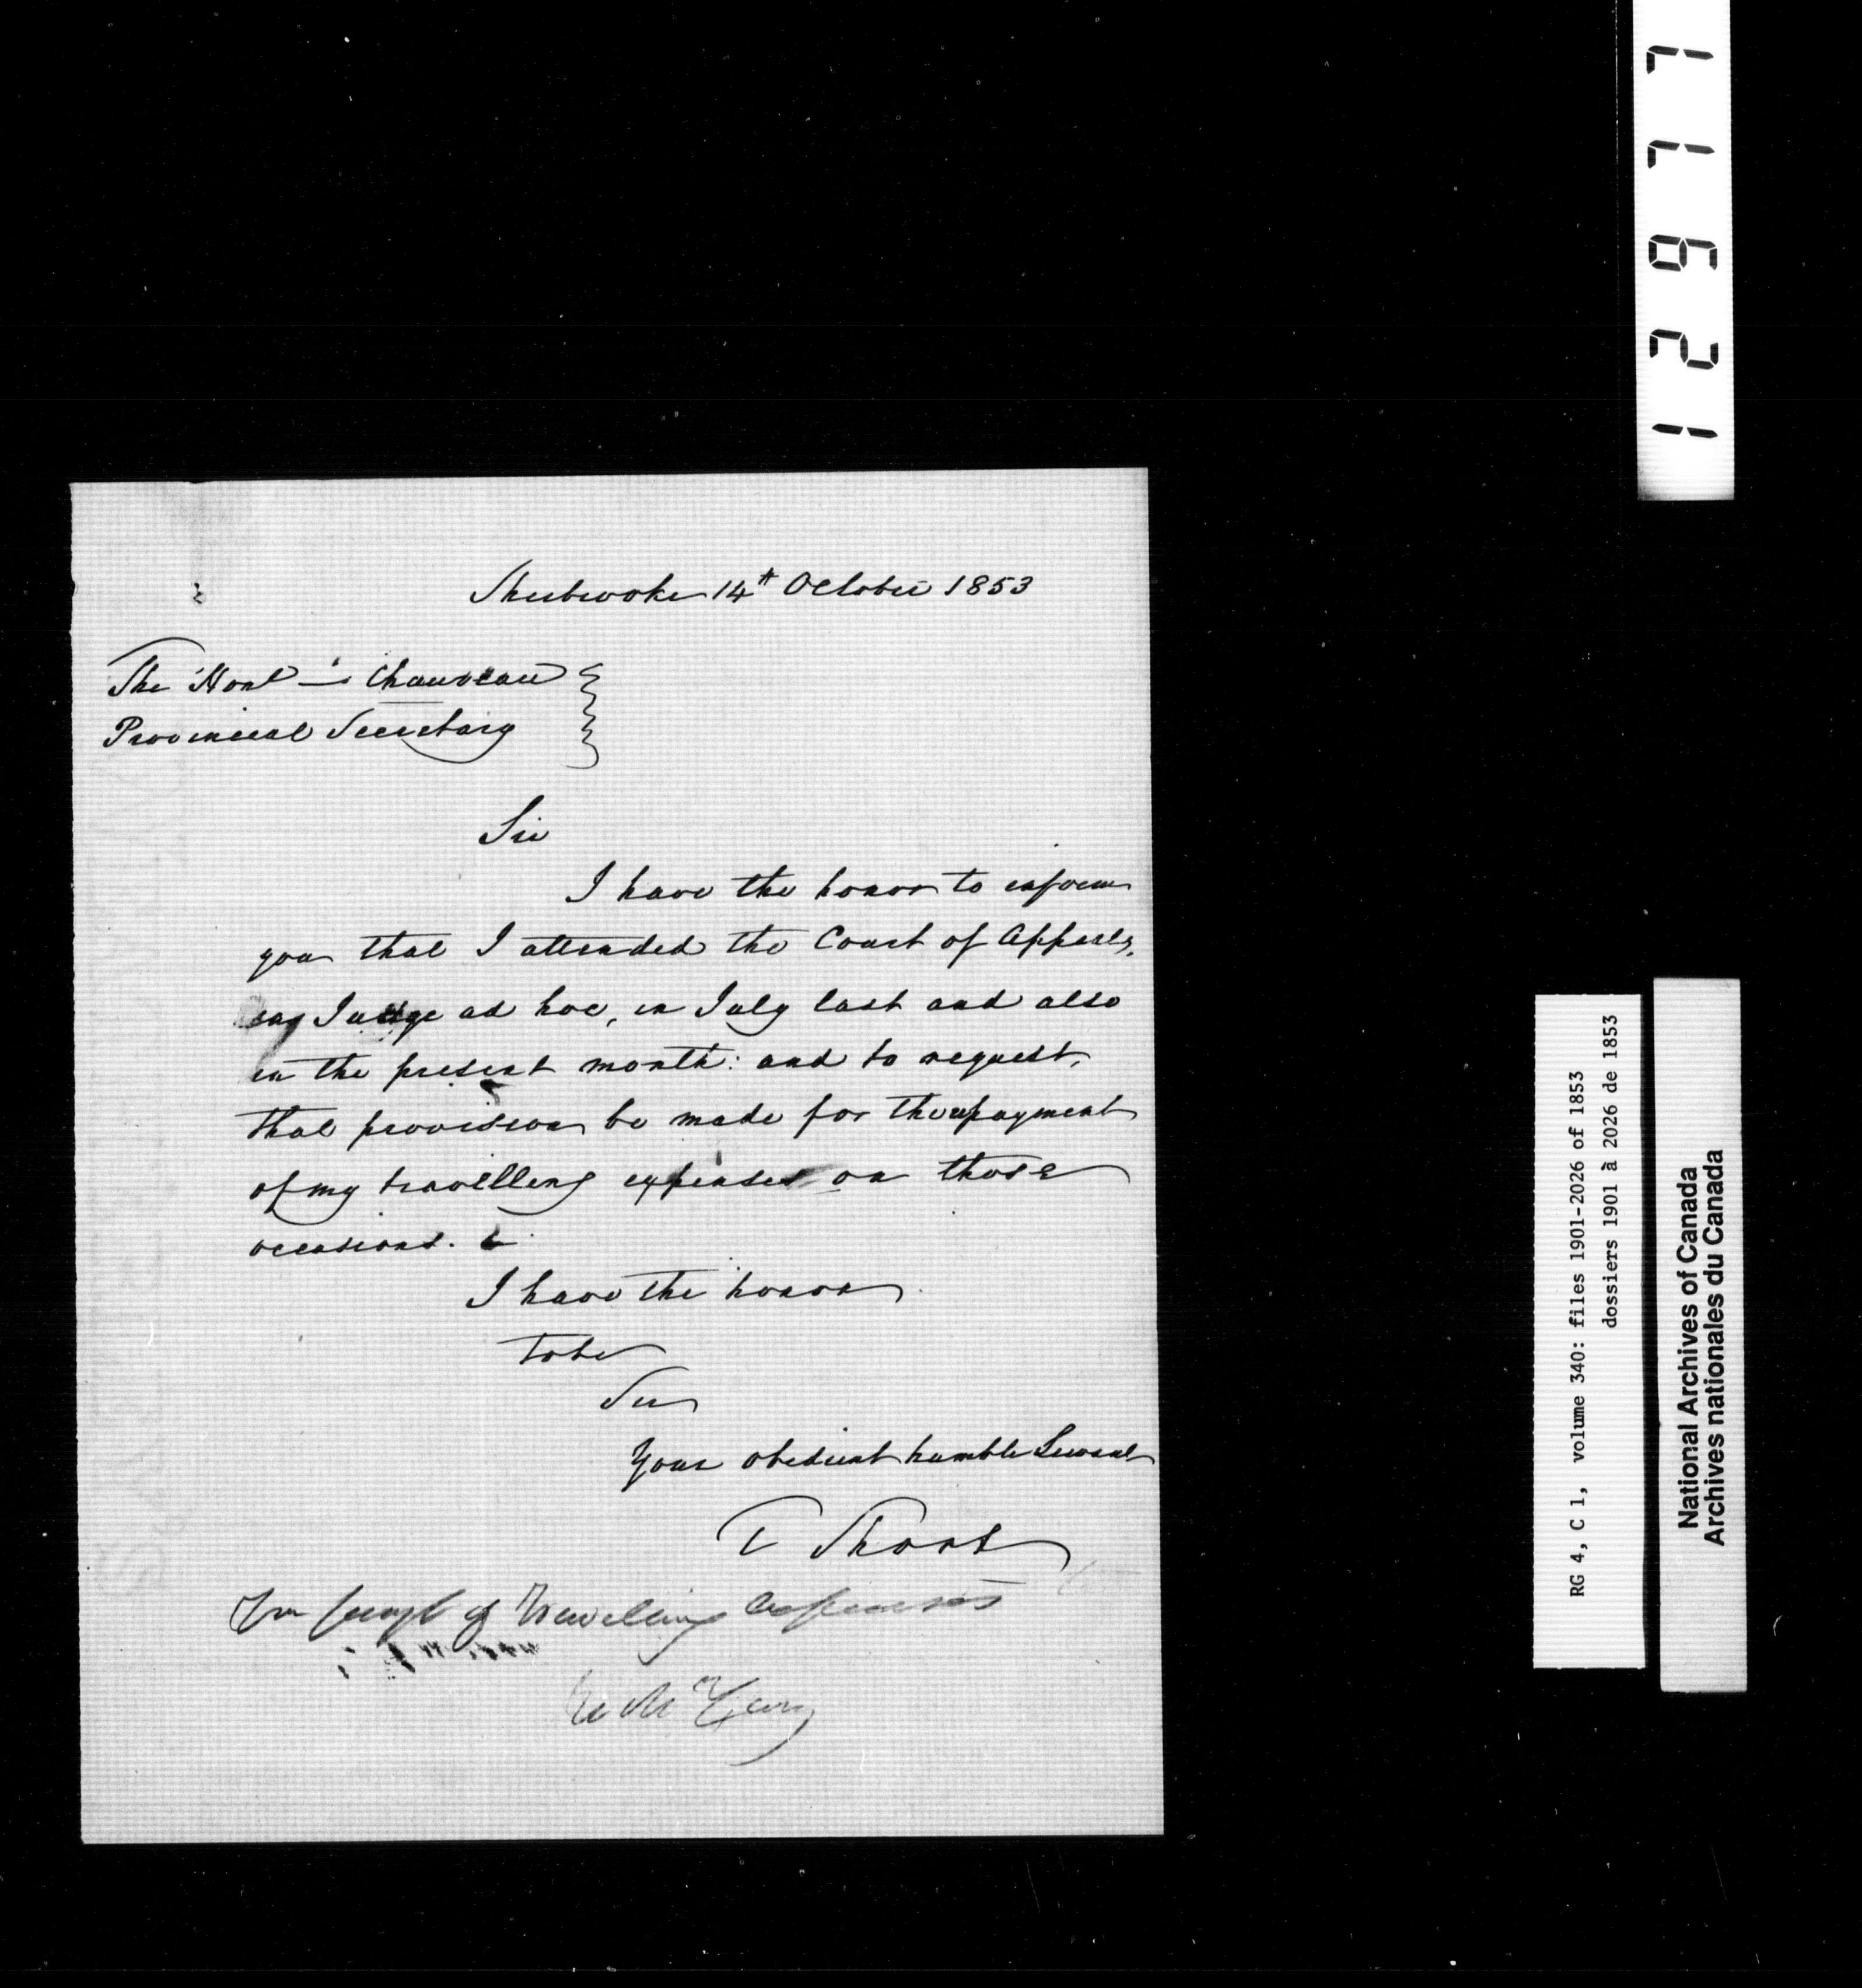 Sherbrooke 14th October 1853
The Honl — Chauveau
Provincial Secretary
Sir
I have the honor to inform
you that I attended the Court of Appeals,
as Judge ad hoc, in July last and also
in the present month: and to request,
that provision be made for the repayment
of my travelling expenses on those
occasions.
I have the honor
to be
Sir
Your obedient humble Servant
E Short
of Travelling Expenses
12677
RG 4, C 1, volume 340: files 1901-2026 of 1853
dossiers 1901 à 2026 de 1853
National Archives of Canada
Archives nationales du Canada